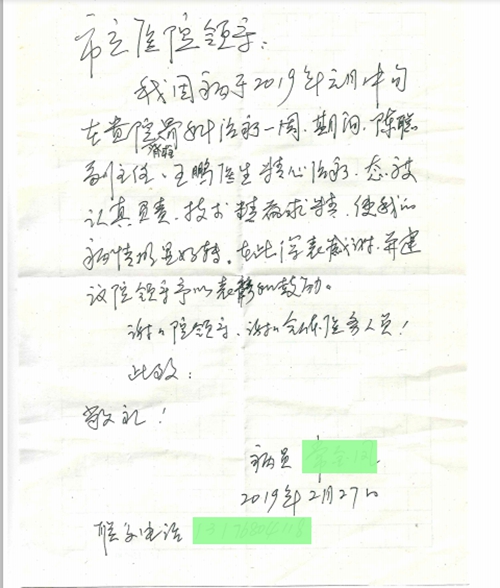 市立医院领导：
我因病于2019年元月中旬
在贵院骨外科治病一周，期间，陈聪
脊柱
副主任、王鹏医生精心治病，态度
认真负责，技术精益求精，使我的
病情明显好转。在此深表感谢，并建
议院领导予以表彰和鼓励。
谢谢院领导、谢谢全体医务人员！
此致：
敬礼！
病员
2019年2月27日
联系电话